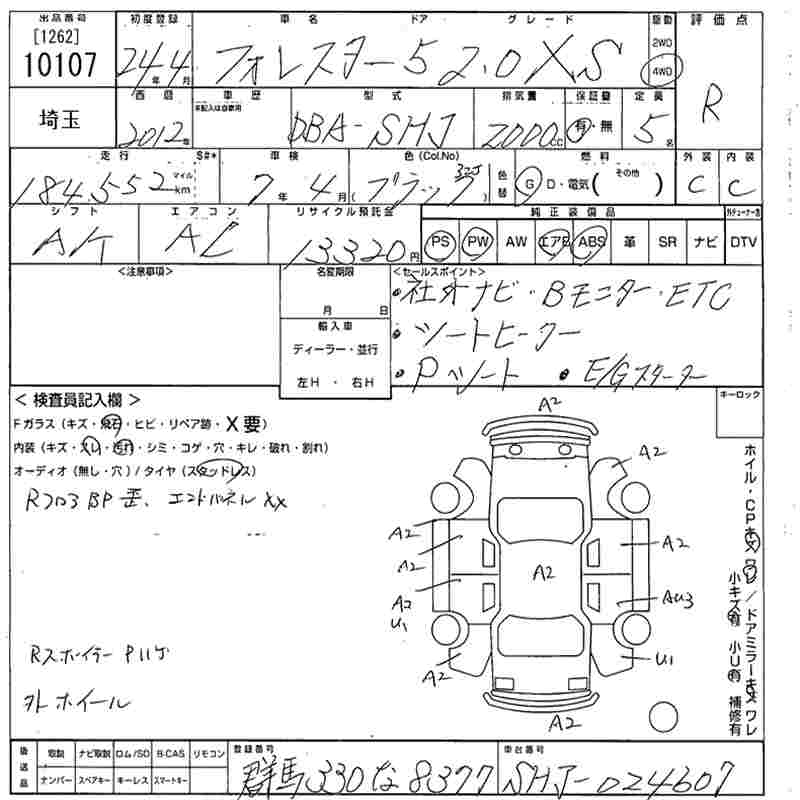 出品番号 初度登録 車名 ドア グレード 駆動 評価点
[1262]
10107 24年4月 フォレスター 5 2.0XS 2WD 4WD R
埼玉 西暦 車歴 型式 排気量 保証書 定員
未記入は自家用
2012年 DBA-SHJ 2000cc 有・無 5名
走行 S#* 車検 色(Col.No) 色替 燃料 外装 内装
184,552 マイル km 7年4月 (ブラック 32J) G D・電気( その他 ) C C
シフト エアコン リサイクル預託金 純正装備品
A/T AC 13320円 PS PW AW エアB ABS 革 SR ナビ DTV
<注意事項> 名変期限 <セールスポイント>
月 日 ・社外ナビ・Bモニター・ETC
輸入車 ・シートヒーター
ディーラー・並行 ・Pシート ・E/Gスターター
左H・右H
<検査員記入欄> キーロック
Fガラス(キズ・飛石・ヒビ・リペア跡・X要)
内装(キズ・スレ・汚れ・シミ・コゲ・穴・キレ・破れ・割れ)
オーディオ(無し・穴)/タイヤ(スタッドレス)
Rフロア BP歪、エンドパネルXX
A2
A2
A2 A2
A2 A2
A2 AU3
U1
A2 U1
A2
Rスポイラー P11ケ
外ホイール
ホイル・CPキズ
/ドアミラーキズワレ
小キズ有 小U有 補修有
後送品 取説 ナビ取説 ロム/SD B-CAS リモコン 登録番号 車台番号
ナンバー スペアキー キーレス スマートキー 群馬330な8377 SHJ-024607